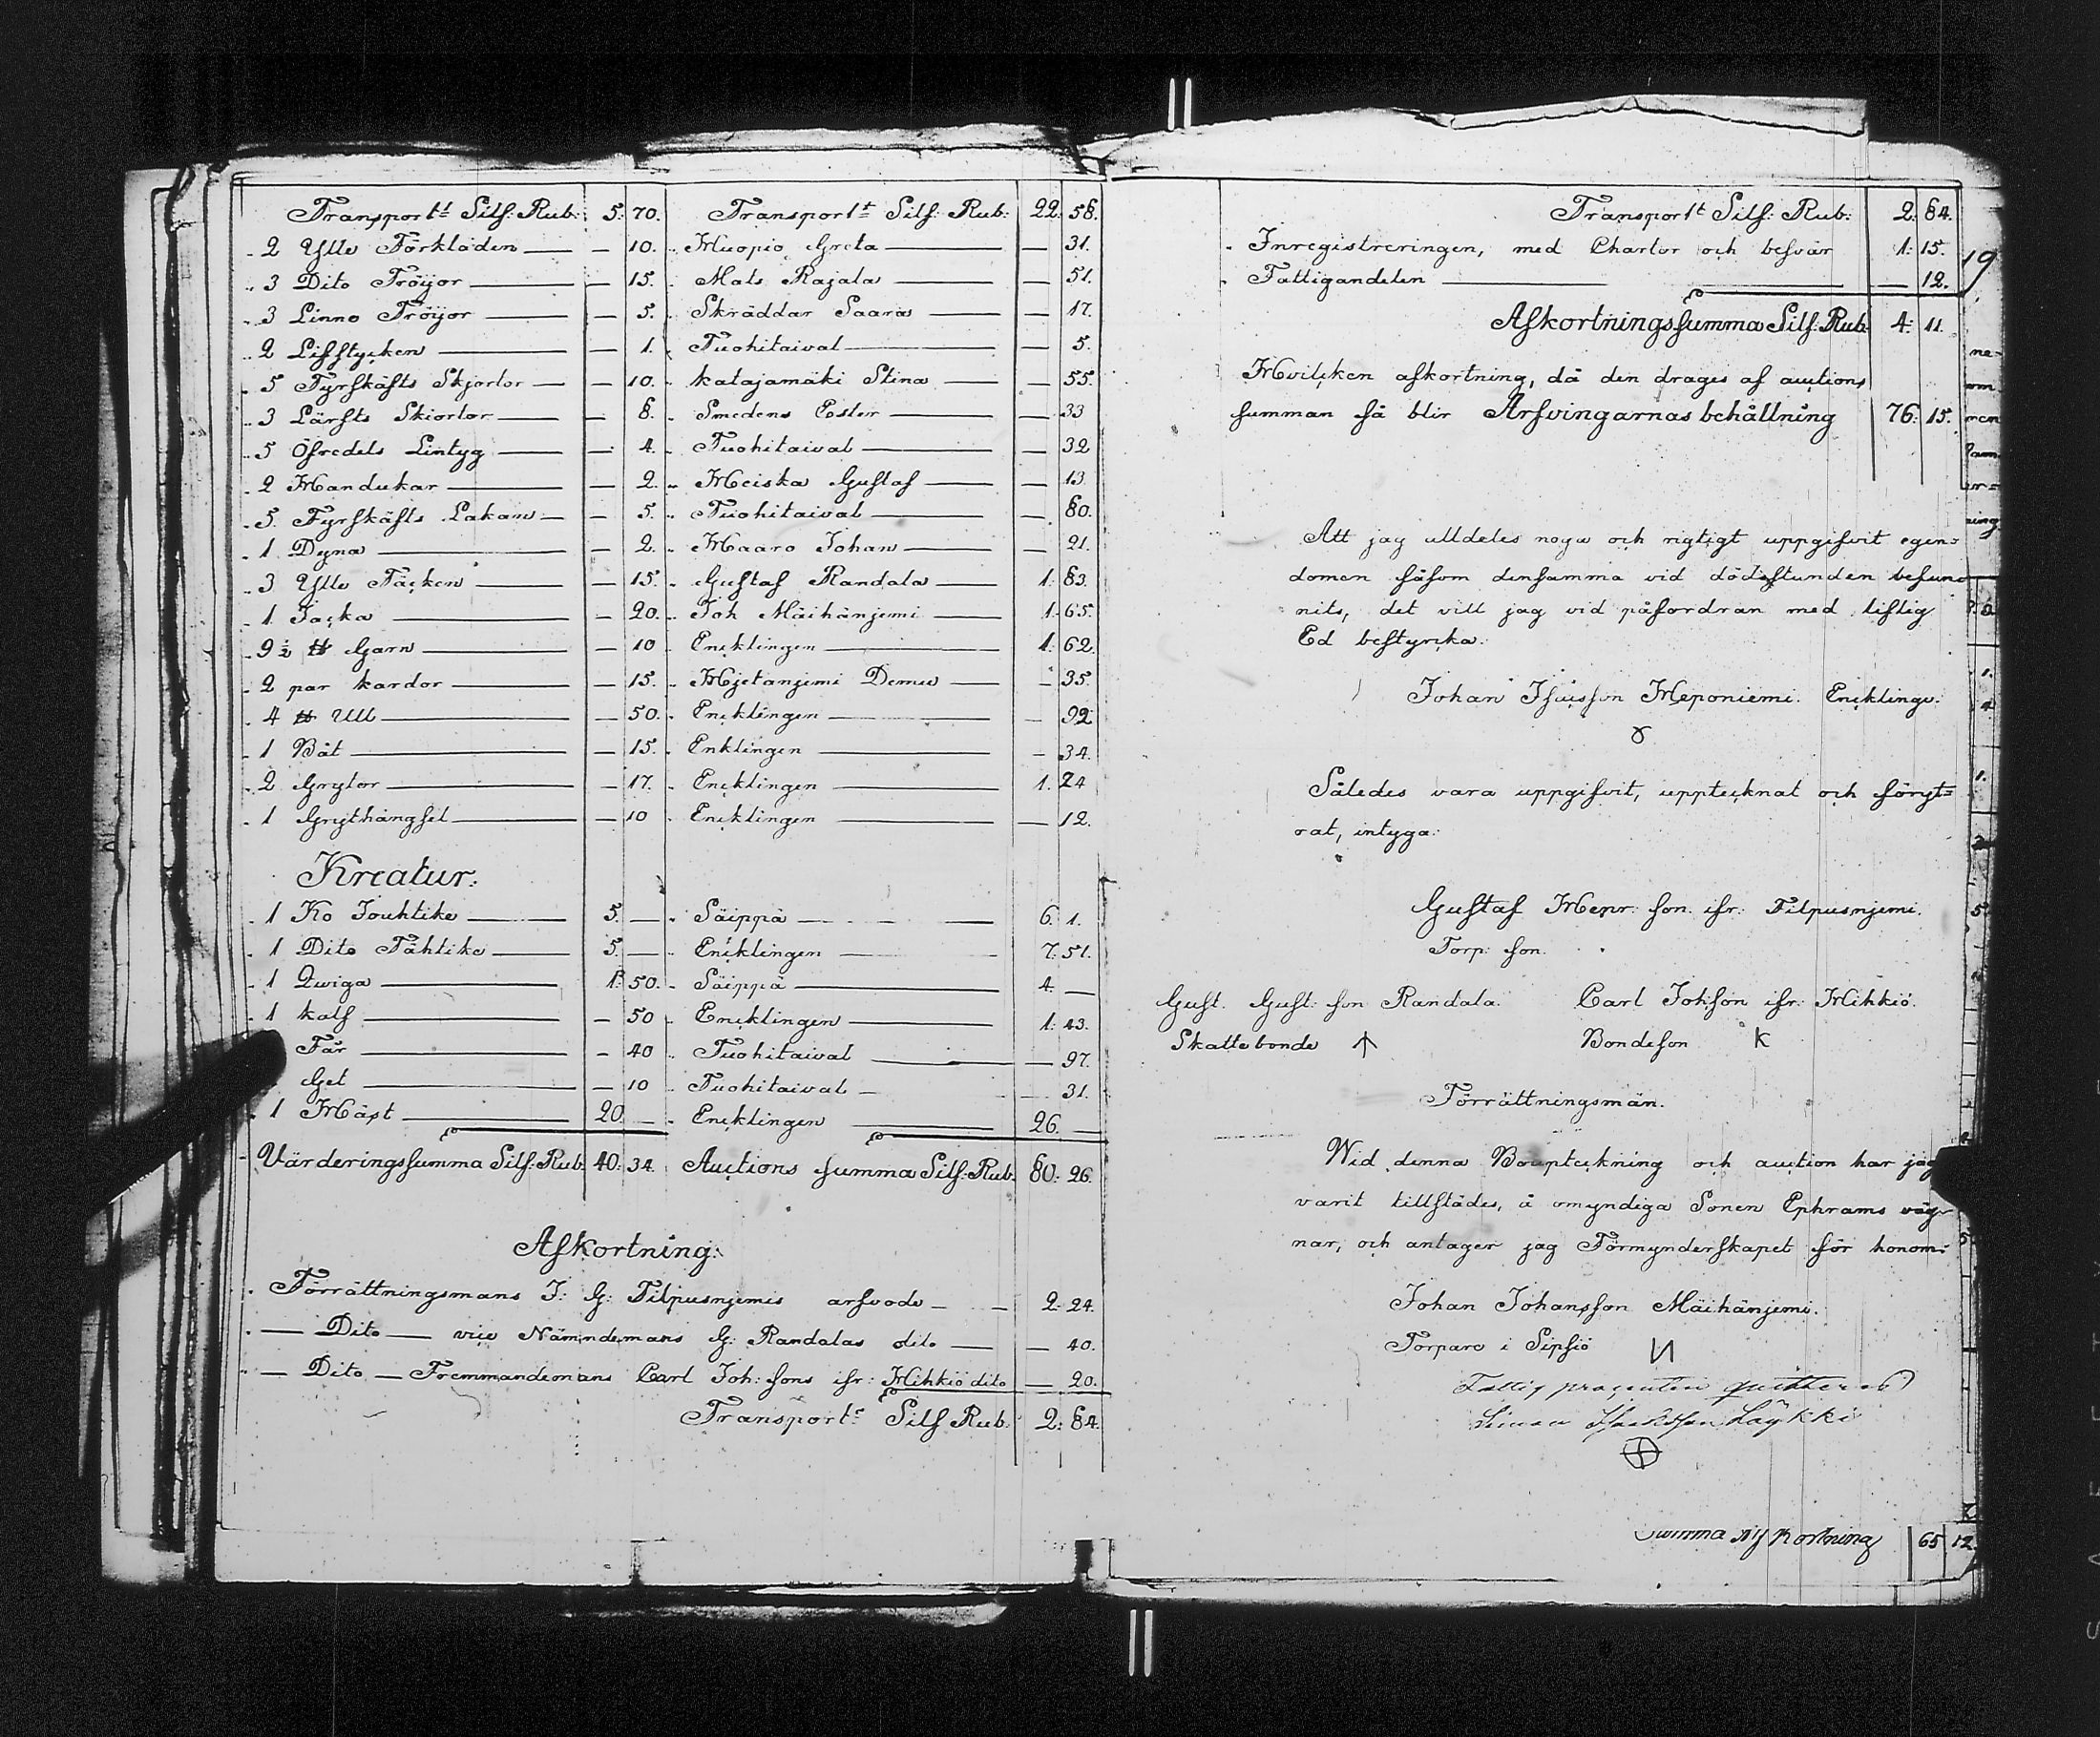 Transport:t Silf: Rub: 5: 70. Transport:t Silf: Rub: 22: 58.
2 Ylle Förkläden — 10. Kuopio Greta — 31.
3 Dito Tröijor — 15. Mats Rajala — 51.
3 Linne Tröijor — 5. Skräddar Saara — 17.
2 Lifstycken — 1. Tuohitaival — 5.
5 Fyrskäfts Skjortor — 10. Katajamäki Stina — 55.
3 Lärfts Skiortor — 8. Smedens Ester — 33
5 Öfredels Lintyg — 4. Tuohitaival — 32
2 Handukar — 2. Heiska Gustaf — 13
5. Fyrskäfts Lakan — 5. Tuohitaival — 80.
1 Dyna — 2. Haaro Johan — 21.
3 Ylle Täcken — 15. Gustaf Randala 1: 83.
1 Jacka — 20. Joh Mäihänjemi 1: 65.
9½ ℔ Garn — 10 Encklingen 1: 62.
2 par kardor — 15. Hjetanjemi Demu — 35.
4 ℔ Ull — 50. Encklingen — 92
1 Båt — 15. Enklingen — 34.
2 Grytor — 17. Encklingen 1. 24
1 Grythängsel — 10 Encklingen — 12.
Kreatur:
1 Ko Jouhtike 5. — Säippä 6. 1.
1 Dito Tähtike 5. — Encklingen 7. 51.
1 Qwiga 1: 50. Säippä 4. —
1 Kalf — 50 Encklingen 1: 43.
Får — 40 Tuohitaival — 97.
Get — 10 Tuohitaival — 31.
1 Häst 20. — Encklingen 26. —
Värderingssumma Silf: Rub: 40: 34. Auctions summa Silf: Rub. 80: 26.
Afkortning:
Förrättningsmans J: G: Filpusnjemis arfvode — 2: 24.
— Dito — vice Nämndemans G: Randalas dito — 40.
— Dito — Fremmandemans Carl Joh: sons ifr: Hihkiö dito — 20.
Transport:t Silf Rub: 2: 84.
Transport:t Silf: Rub: 2: 84.
Inregistreringen, med Chartor och besvär 1: 15.
19
Fattigandelen — 12.
Afkortningssumma Silf: Rub 4: 11.
Hvilcken afkortning, då den drages af auctions
summan så blir Arfvingarnas behållning 76: 15.
Att jag alldeles noga och rigtigt uppgifvit egen=
domen såsom densamma vid dödsstunden befun=
nits, det vill jag vid påfordran med liflig
Ed bestyrcka:
Johan Isacsson Heponiemi. Encklinge:
Således vara uppgifvit, upptecknat och föryt=
rat, intyga:
Gustaf Henr: son ifr: Filpusnjemi.
Torp: son.
Gust. Gust: son Randala. Carl Joh:son ifr: Hihkiö.
Skattebonde Bondeson K
Förrättningsmän.
Wid denna Bouptckning och auction har jag
varit tillstädes, å omyndiga Sonen Ephrams väg=
nar, och antager jag Förmynderskapet för honom:
Johan Johansson Mäihänjemi.
Torpare i Sipsiö
Fattig procenten quitteras
Simon Isacksson Läykki
Summa Afkortning 65 12